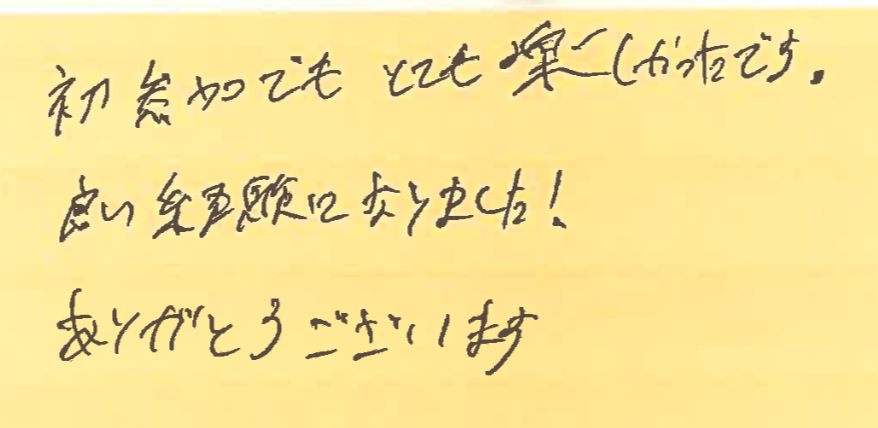 初参加でも とても楽しかったです。
良い経験になりました!
ありがとうございます